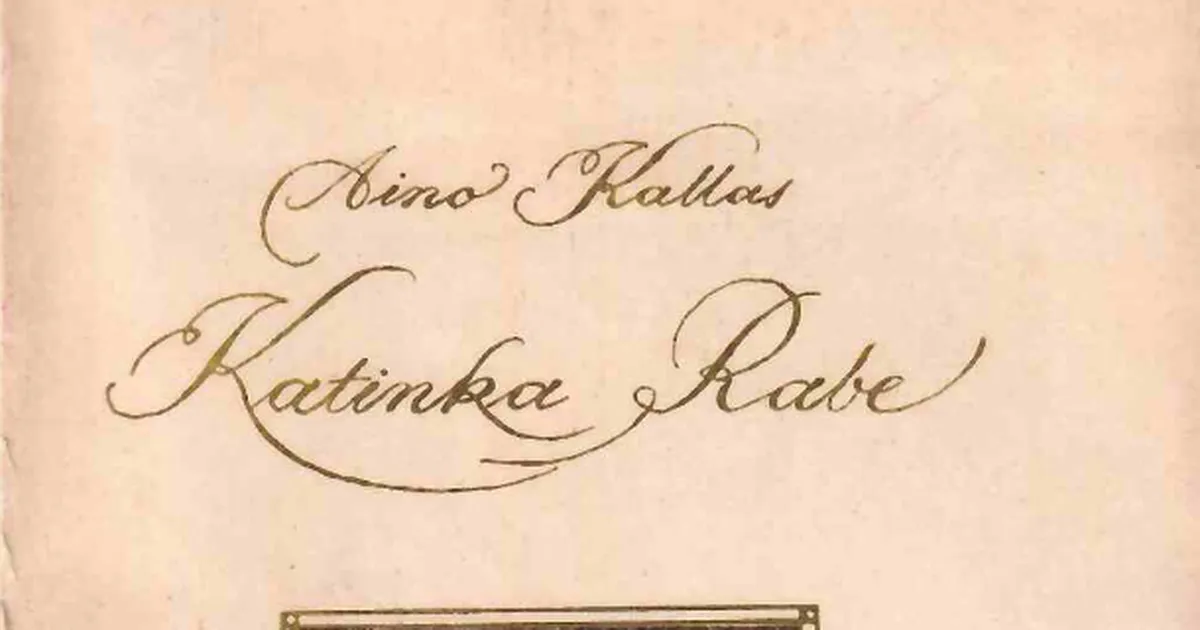 Aino Kallas
Katinka Rabe